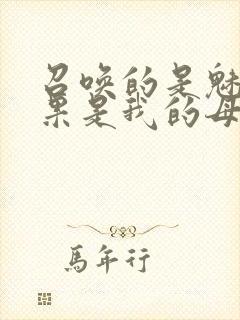 召唤的是魅
果是我的母
馬年行